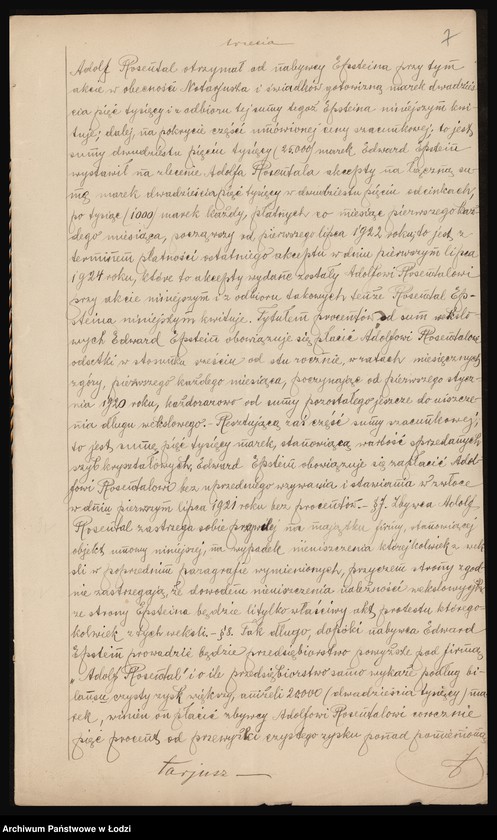 7
Adolf Rosental otrzymał od nabywcy Epsteina przy tym
akcie w obecności Notarjusza i świadków gotowizną marek dwadzieś-
cia pięć tysięcy i z odbioru tej sumy tegoż Epsteina niniejszym kwi-
tuje; dalej, na pokrycie części umówionej ceny szacunkowej, to jest
sumy dwudziestu pięciu tysięcy (25000) marek Edward Epstein
wystawił na zlecenie Adolfa Rosentala akcepty na łączną su-
mę marek dwadzieścia pięć tysięcy w dwudziestu pięciu odcinkach,
po tysiąc (1000) marek każdy, płatnych co miesiąc pierwszego każ-
dego miesiąca, począwszy od pierwszego lipca 1922 roku, to jest z
terminem płatności ostatniego akceptu w dniu pierwszym lipca
1924 roku, które to akcepty wydane zostały Adolfowi Rosentalowi
przy akcie niniejszym i z odbioru takowych tenże Rosental Ep-
steina niniejszym kwituje. Tytułem procentów od sum wekslo-
wych Edward Epstein obowiązuje się płacić Adolfowi Rosentalowi
odsetki w stosunku sześciu od stu rocznie, w ratach miesięcznych
z góry, pierwszego każdego miesiąca, poczynając od pierwszego stycz-
nia 1920 roku, każdorazowo od sumy pozostałego jeszcze do uiszcze-
nia długu wekslowego. - Resztującą zaś część sumy szacunkowej,
to jest sumę pięć tysięcy marek, stanowiącą wartość sprzedanych
szyb kryształowych, Edward Epstein obowiązuje się zapłacić Adol-
fowi Rosentalowi bez uprzedniego wzywania i stawiania w zwłoce
w dniu pierwszym lipca 1921 roku bez procentów. - §7. Zbywca Adolf
Rosental zastrzega sobie prawo na majątku firmy, stanowiącej
objekt umowy niniejszej, na wypadek nieuiszczenia którejkolwiek z wek-
sli w poprzednim paragrafie wymienionych, przyczem strony zgod-
nie zastrzegają, że dowodem nieuiszczenia należności wekslowych
ze strony Epsteina będzie li tylko właściwy akt protestu którego-
kolwiek z tych weksli. - §8. Tak długo, dopóki nabywca Edward
Epstein prowadzić będzie przedsiębiorstwo powyższe pod firmą
„Adolf Rosental" i o ile przedsiębiorstwo samo wykaże podług bi-
lansu czysty zysk większy, aniżeli 20000 (dwadzieścia tysięcy) ma-
rek, winien on płacić zbywcy Adolfowi Rosentalowi corocznie
pięć procent od przewyżki czystego zysku ponad pomienioną
tarjusz
Archiwum Państwowe w Łodzi